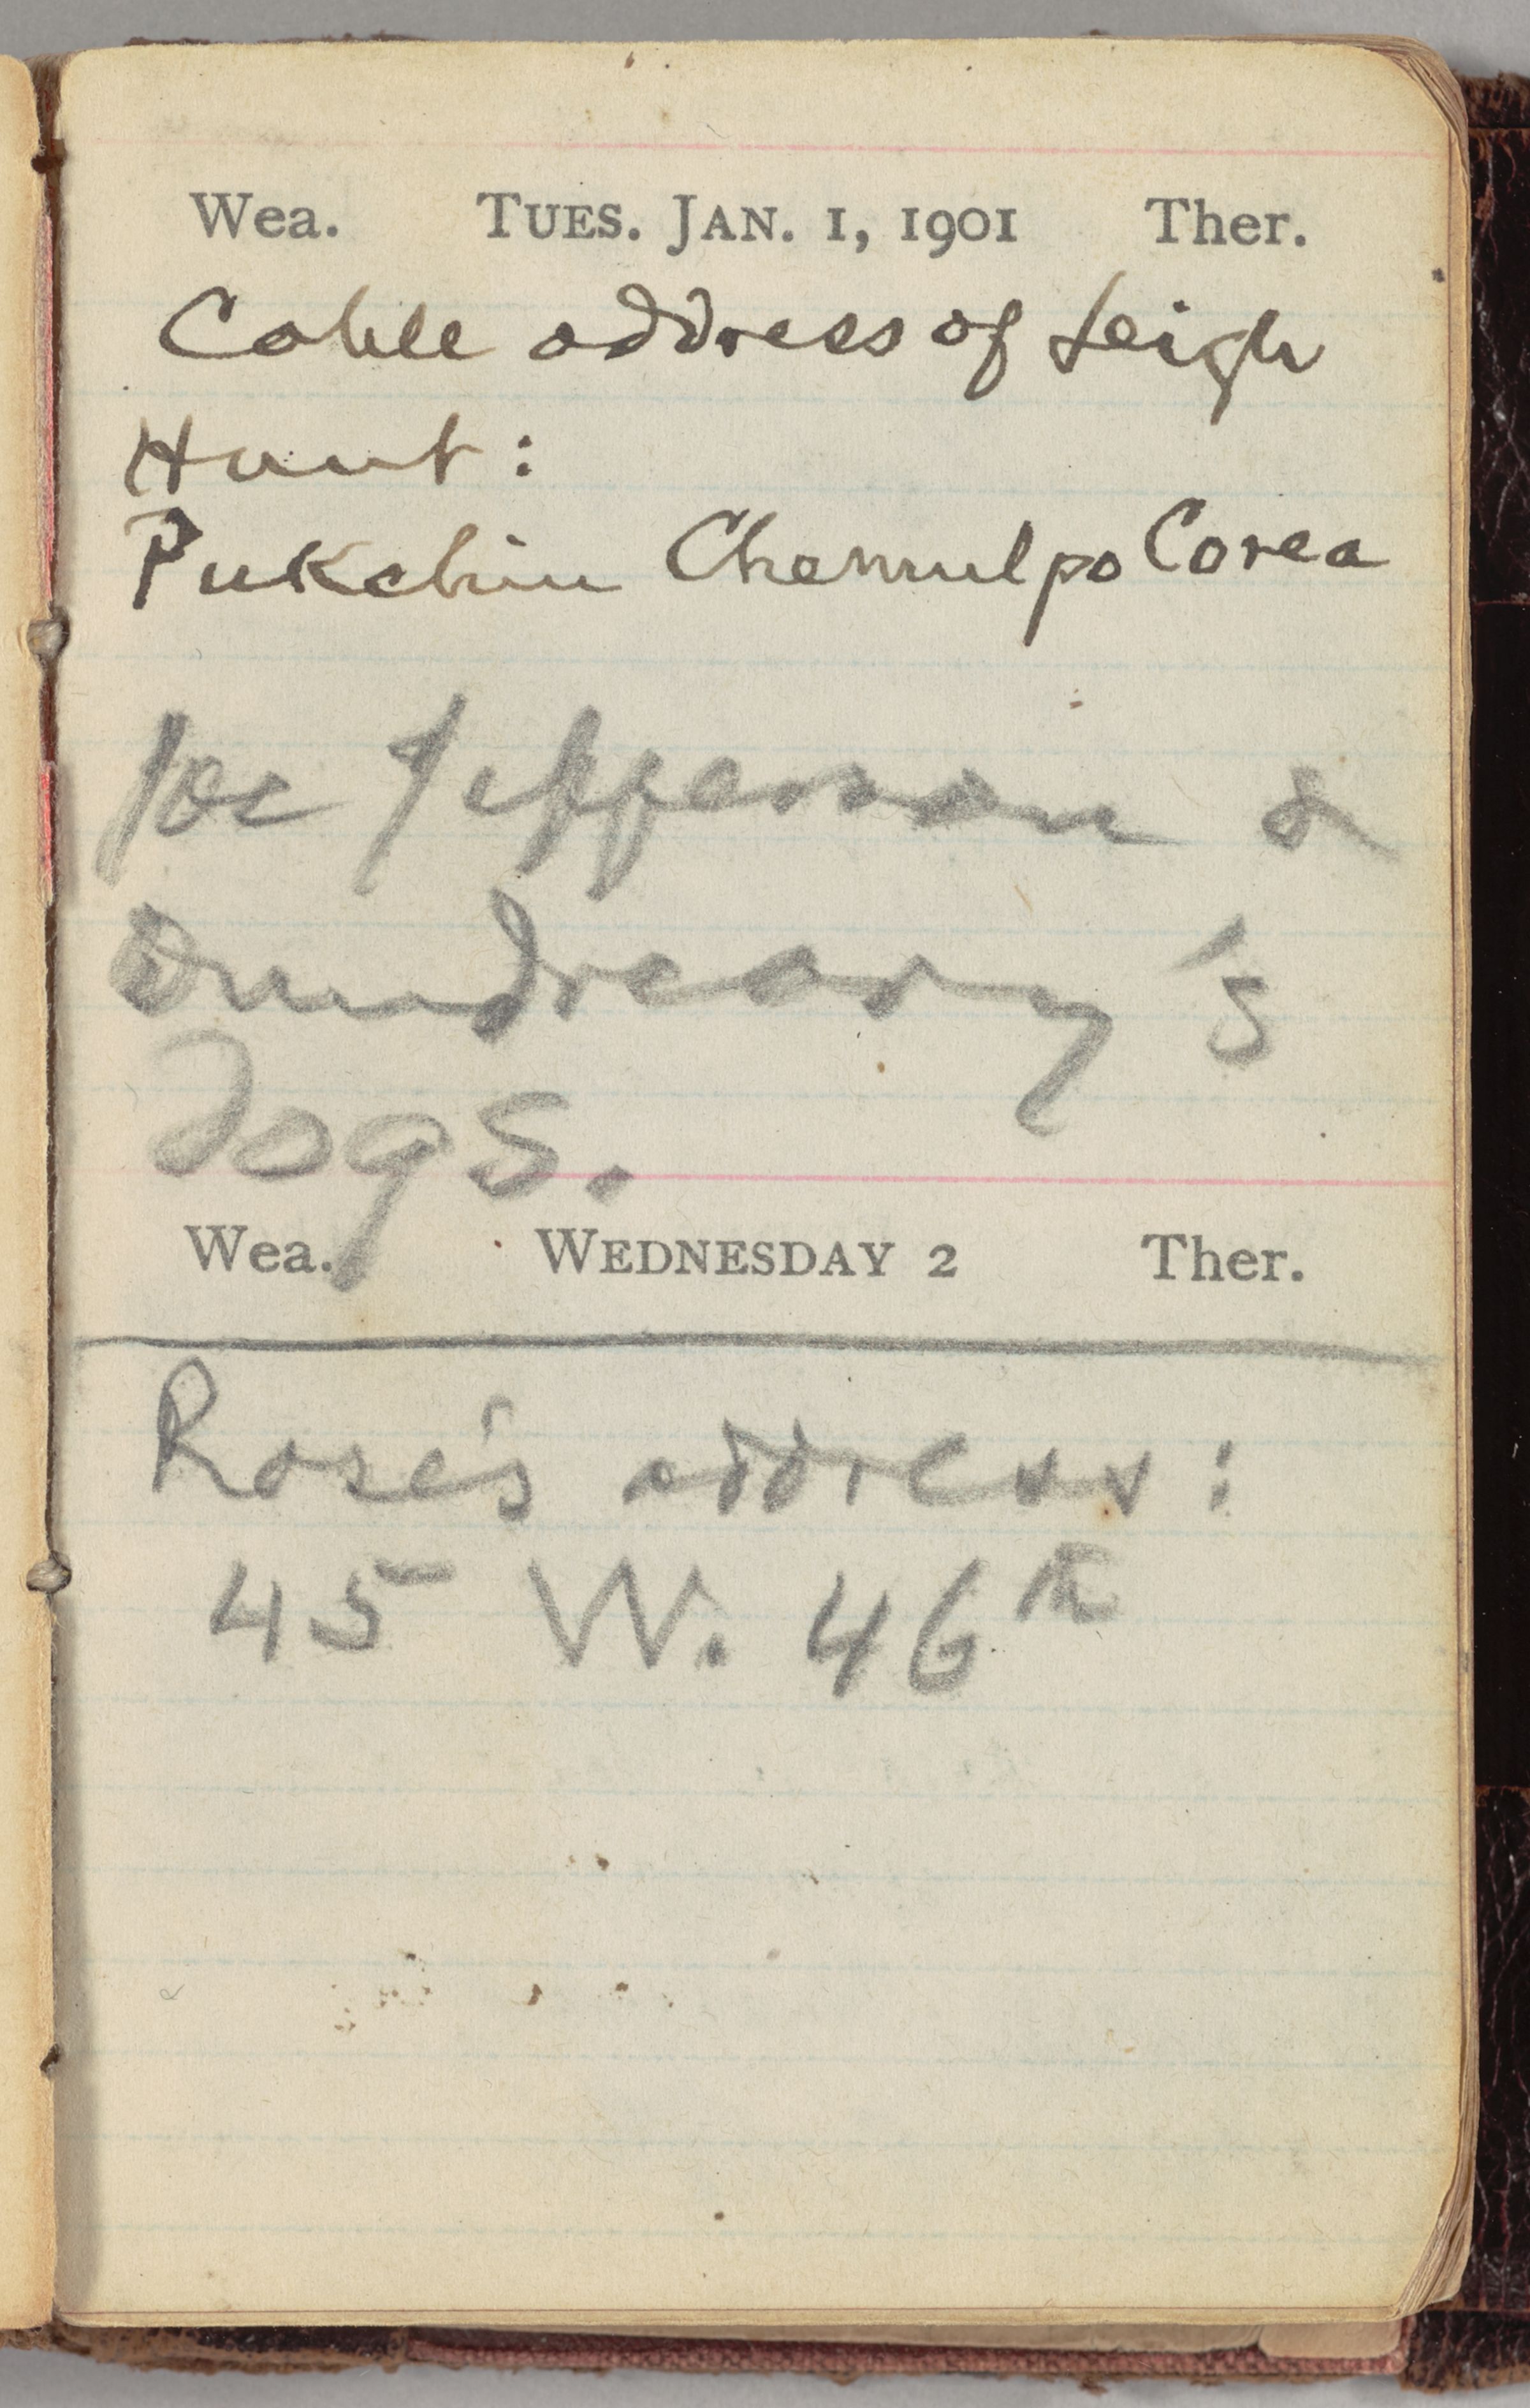 Wea. TUES. JAN. 1, 1901 Ther.
Cable address of Leigh
Hunt:
Pukchin Chemulpo Corea
Joe Jefferson &
Dundreary's
dogs.
Wea. WEDNESDAY 2 Ther.
Rose's address:
45 W. 46th